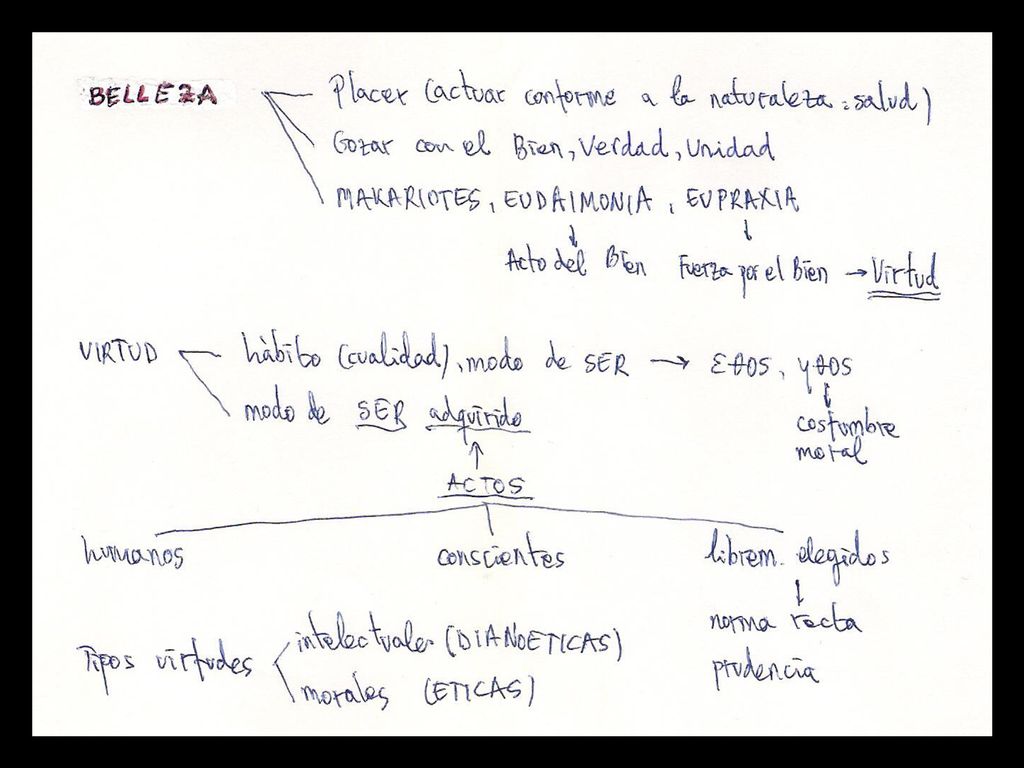 BELLEZA
Placer (actuar conforme a la naturaleza: salud)
Gozar con el Bien, Verdad, Unidad
MAKARIOTES, EUDAIMONIA, EUPRAXIA
↓ ↓
Acto del Bien Fuerza por el Bien → Virtud
VIRTUD
hàbito (cualidad), modo de SER → Eθos, yθos
↓
modo de SER adquirido
costumbre
moral
↑
ACTOS
humanos conscientes librem. elegidos
↓
norma recta
prudencia
Tipos virtudes
intelectuales (DIANOETICAS)
morales (ETICAS)